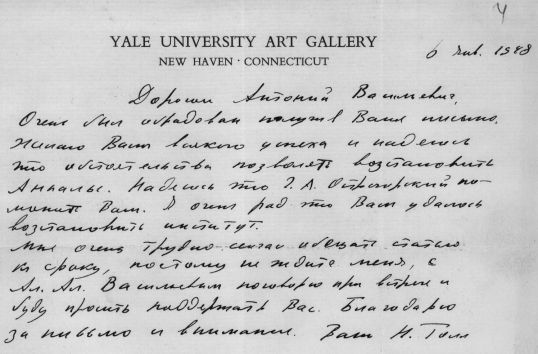 4
YALE UNIVERSITY ART GALLERY
NEW HAVEN · CONNECTICUT
6 янв. 1948
Дорогой Антоний Васильевич,
Очень был обрадован получив Ваше письмо.
Желаю Вам всякого успеха и надеюсь
что обстоятельства позволят возстановить
Анналы. Надеюсь что Г. А. Острогорский по-
может Вам. Я очень рад что Вам удалось
возстановить институт.
Мне очень трудно сейчас обещать статью
к сроку, поэтому не ждите меня, с
Ал. Ал. Васильевым поговорю при встрече и
буду просить поддержать Вас. Благодарю
за письмо и внимание. Ваш Н. Толл